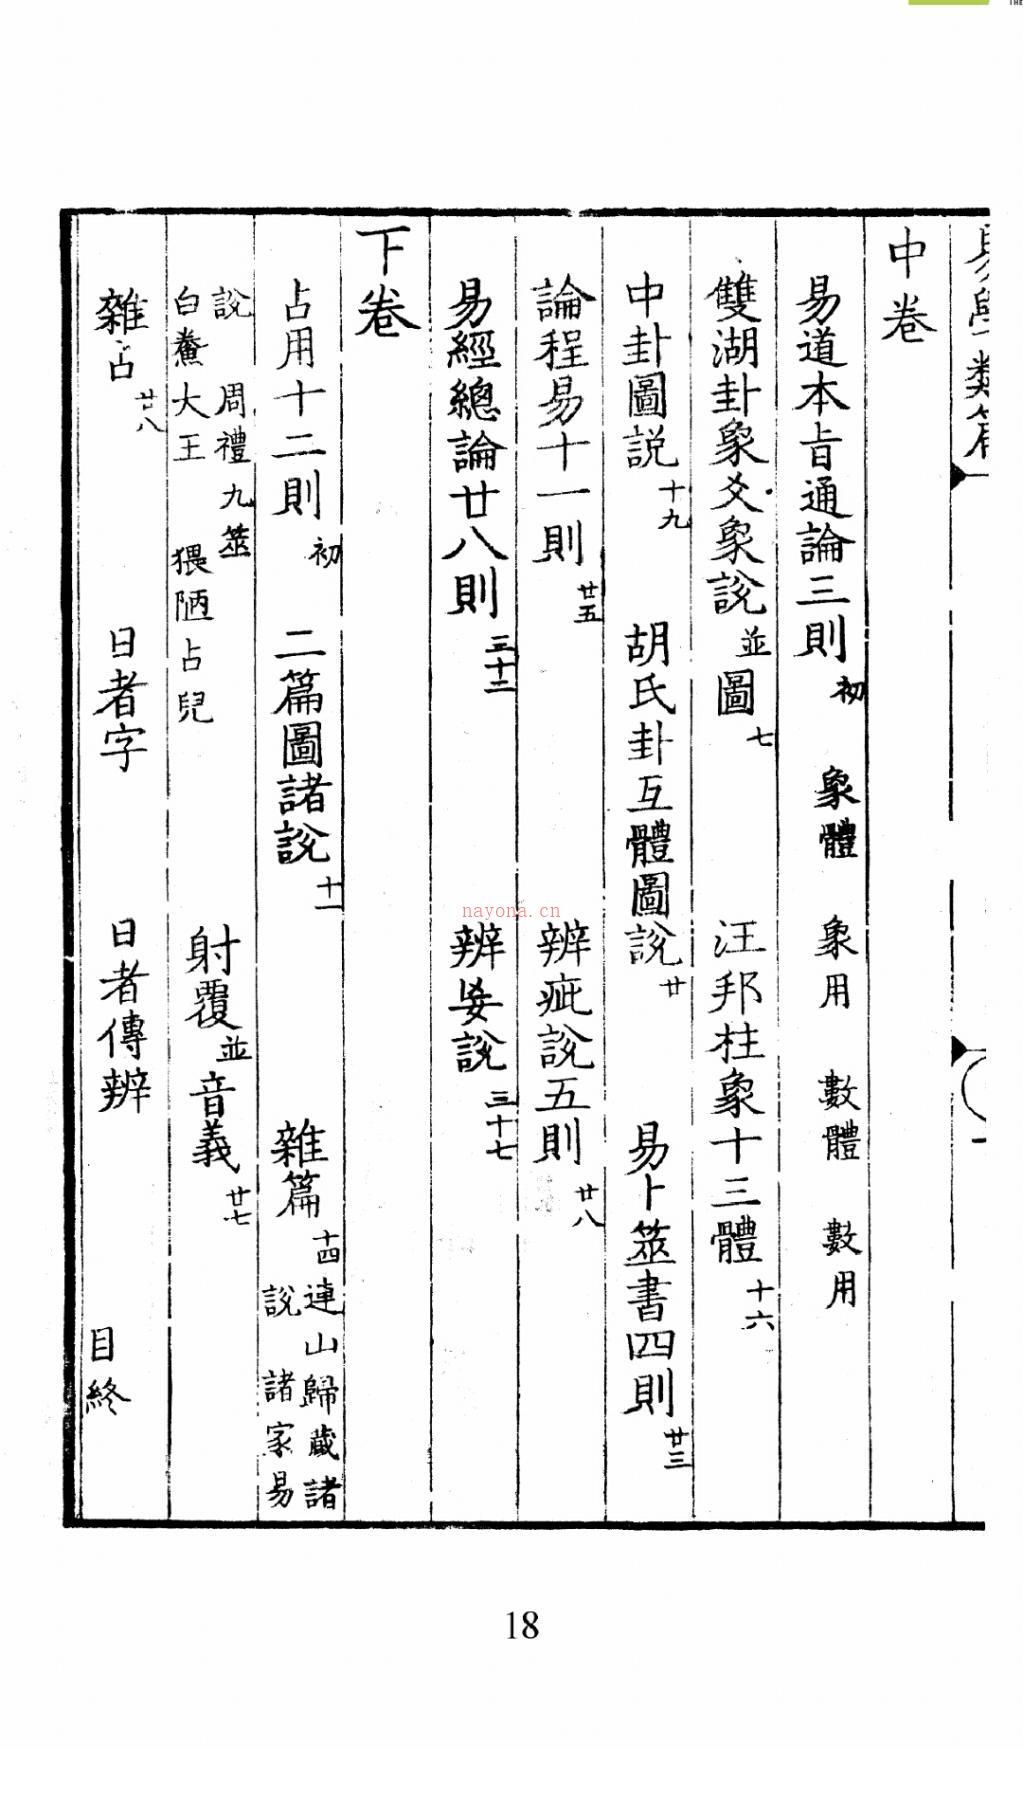 THE
易學類篇
中卷
易道本旨通論三則 初 象體 象用 數體 數用
雙湖卦象爻象說 並 圖 七 汪邦柱象十三體 十六
中卦圖説 十九 胡氏卦互體圖說 廿 易卜筮書四則 廿三
論程易十一則 廿五 辨疵說五則 廿八
易經總論廿八則 三十二 辨妄說 三十七
下卷
占用十二則 初 二篇圖諸說 十一 雜篇 十四 連山歸藏諸
說 諸家易
說 周禮九筮
白鰲大王 猥陋占兒 射覆 並 音義 廿七
雜占 廿八 日者字 日者傳辨 目終
nayona.cn
18